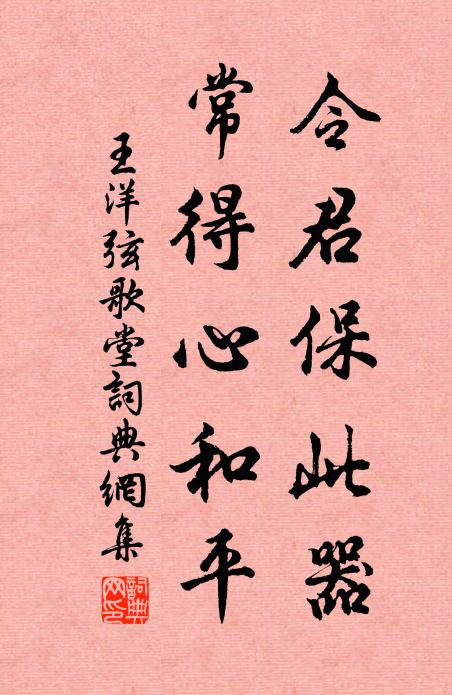 令君保此器
常得心和平
王洋弦歌堂詞典網集
詞典網印